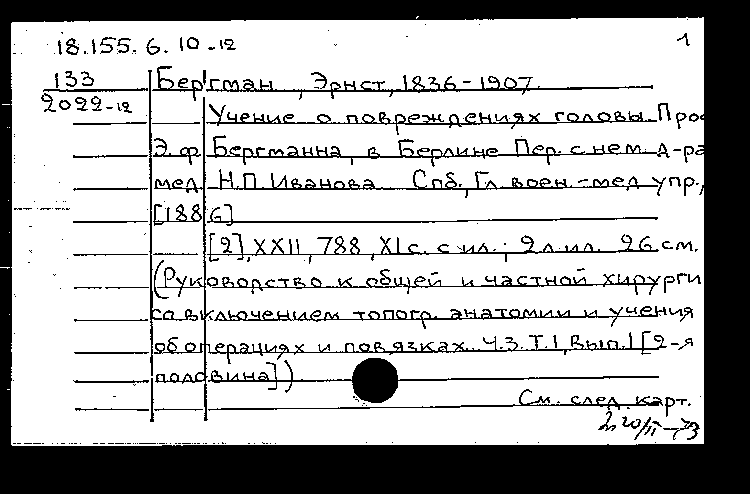 18.155.6.10-12
1
133
2022-12
Бергман, Эрнст, 1836-1907.
Учение о повреждениях головы Про
Э. ф. Бергманна, в Берлине Пер. с нем. д-ра
мед. Н.П. Иванова Спб., Гл. воен.-мед упр.,
[1886]
[2], XXII, 788, XI с. с ил.; 2 л. ил. 26 см.
(Руководство к общей и частной хирурги
со включением топогр. анатомии и учения
об операциях и повязках. Ч.3. Т.1, Вып.1 [2-я
половина])
См. след. карт.
20/II-73